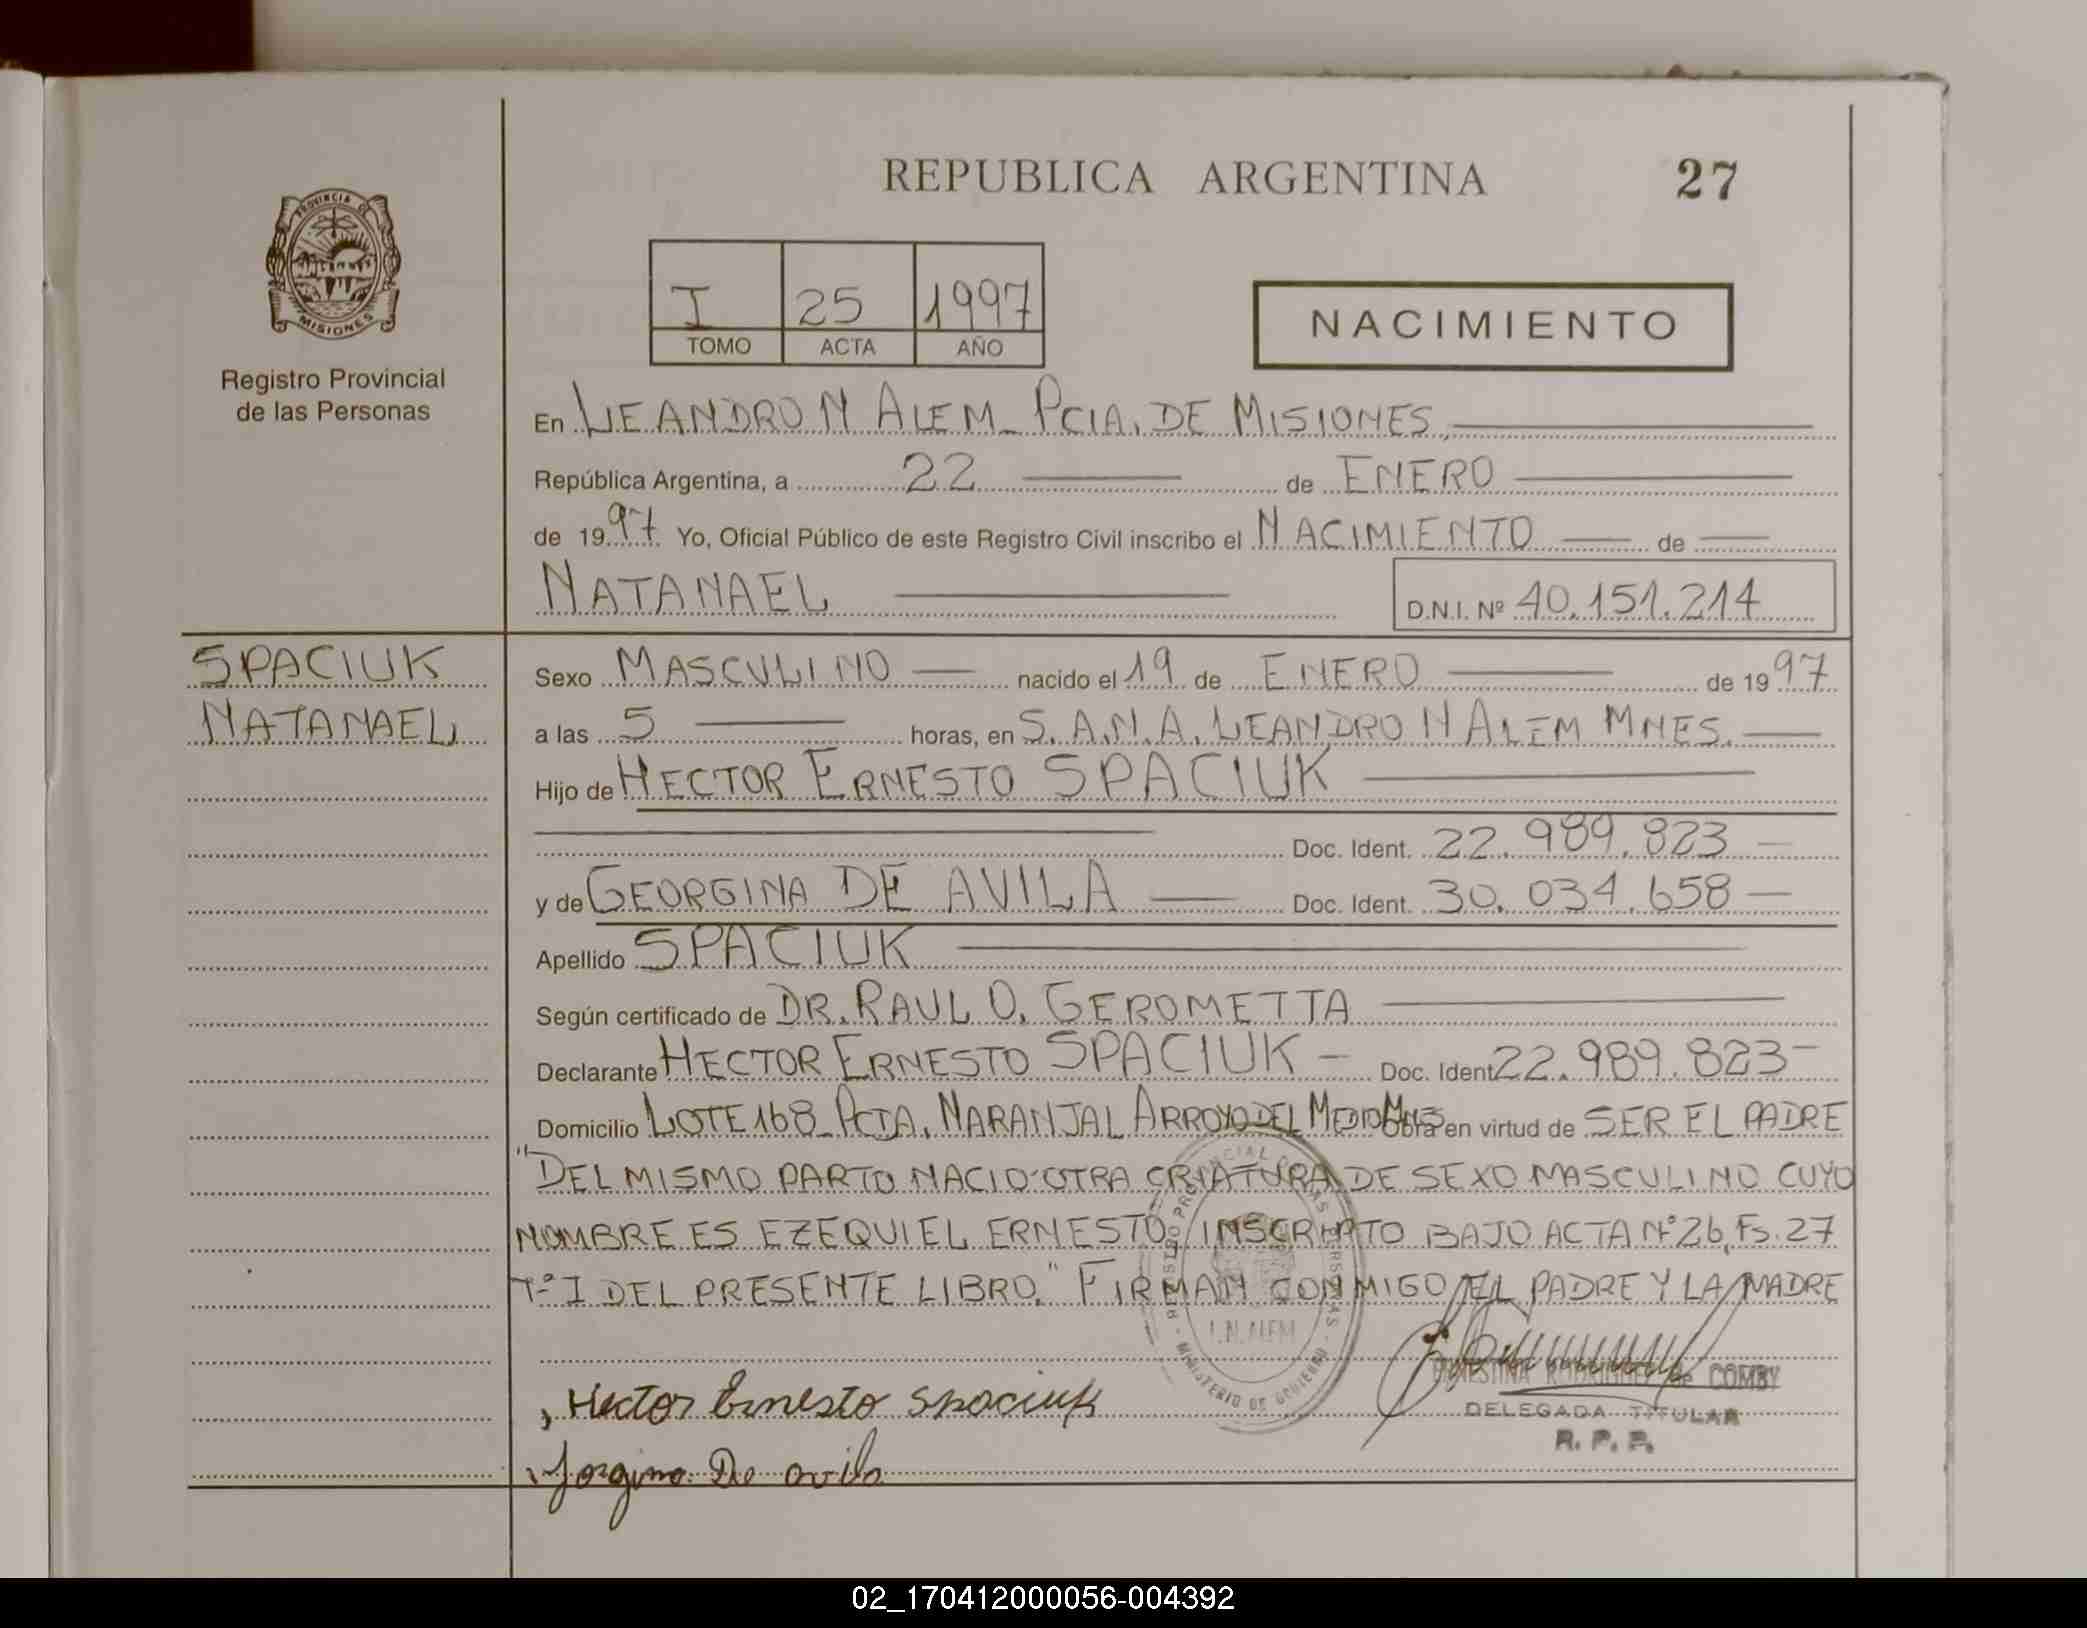 REPUBLICA ARGENTINA 27
PROVINCIA DE
MISIONES
Registro Provincial
de las Personas
I 25 1997
TOMO ACTA AÑO
NACIMIENTO
En LEANDRO N ALEM_ PCIA. DE MISIONES
República Argentina, a 22 de ENERO
de 1997 Yo, Oficial Público de este Registro Civil inscribo el NACIMIENTO de
NATANAEL D.N.I. Nº 40.151.214
SPACIUK
NATANAEL
Sexo MASCULINO nacido el 19 de ENERO de 1997
a las 5 horas, en S.A.N.A. LEANDRO N ALEM MNES.
Hijo de HECTOR ERNESTO SPACIUK
Doc. Ident. 22.989.823
y de GEORGINA DE AVILA Doc. Ident. 30.034.658
Apellido SPACIUK
Según certificado de DR. RAUL O. GEROMETTA
Declarante HECTOR ERNESTO SPACIUK Doc. Ident 22.989.823
Domicilio LOTE 168_ PCIA. NARANJAL ARROYO DEL MEDIO MNES Obra en virtud de SER EL PADRE
"DEL MISMO PARTO NACIO OTRA CRIATURA DE SEXO MASCULINO CUYO
NOMBRE ES EZEQUIEL ERNESTO, INSCRIPTO BAJO ACTA Nº 26, FS. 27
Tº I DEL PRESENTE LIBRO." FIRMAN CONMIGO EL PADRE Y LA MADRE
REGISTRO PROVINCIAL DE LAS PERSONAS - MINISTERIO DE GOBIERNO -
L.N. ALEM
Hector Ernesto Spaciuk
ERNESTINA RODRIGUEZ de COMBY
DELEGADA TITULAR
R. P. P.
Jorgina De avila
02_170412000056-004392